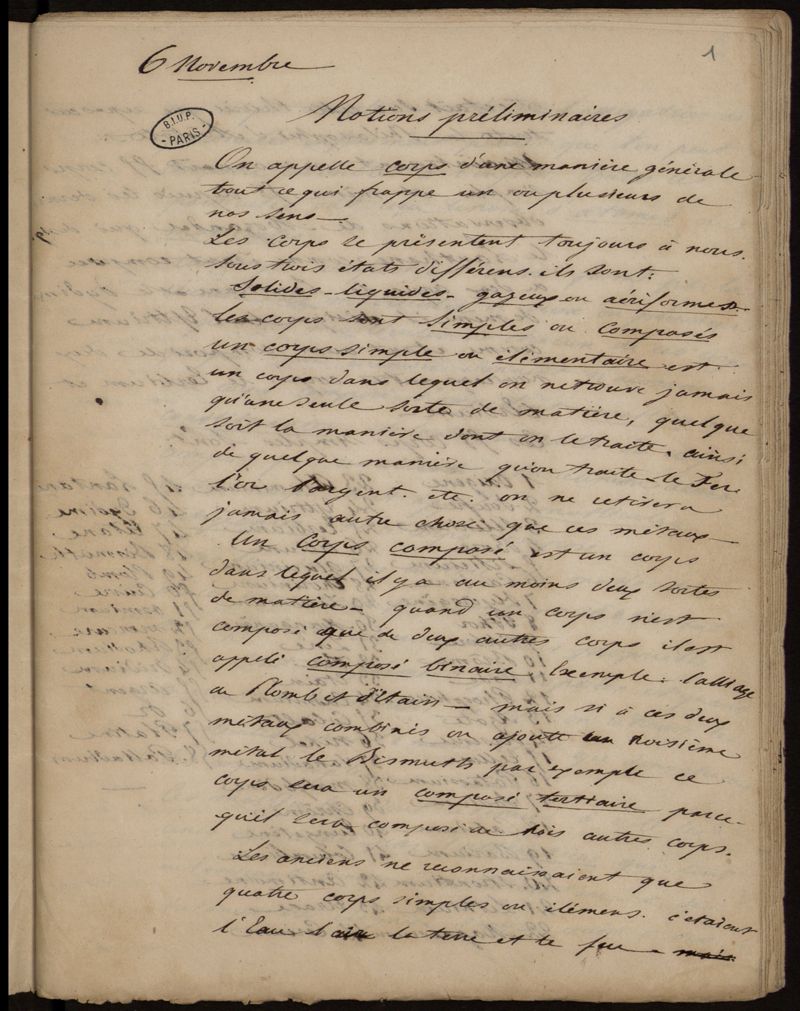 6 Novembre
1
Notions préliminaires
B.I.U.P.
- PARIS -
On appelle corps d'une manière générale
tout ce qui frappe un ou plusieurs de
nos sens —
Les corps se présentent toujours à nous
sous trois états différens. ils sont:
Solides - liquides - gazeux ou aériformes.
les corps sont simples ou composés
un corps simple ou élémentaire est
un corps dans lequel on ne trouve jamais
qu'une seule sorte de matière, quelque
soit la manière dont on le traite. ainsi
de quelque manière qu'on traite le Fer
l'or l'argent. etc. on ne retirera
jamais autre chose que ces métaux —
Un Corps composé est un corps
dans lequel il y a au moins deux sortes
de matière — quand un corps n'est
composé que de deux autres corps il est
appelé composé binaire, Exemple: l'alliage
du Plomb et d'Etain — mais si à ces deux
métaux combinés on ajoute un troisième
métal le Bismuth par exemple ce
corps sera un composé tertiaire parce
qu'il sera composé de trois autres corps.
Les anciens ne reconnaissaient que
quatre corps simples ou élémens. c'étaient
l'Eau l'air la terre et le feu - mais